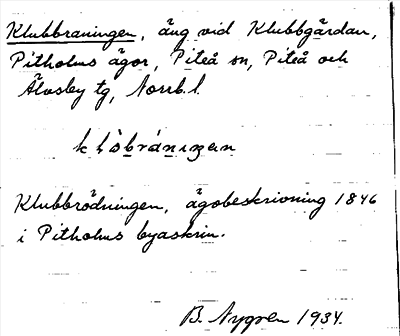 Klubbraningen, äng vid Klubbgärdan,
Pitholms ägor, Piteå sn, Piteå och
Älvsby tg, Norrb. l.
Klubbrödningen, ägobeskrivning 1846
i Pitholms byaskrin.
B. Nygren 1934.